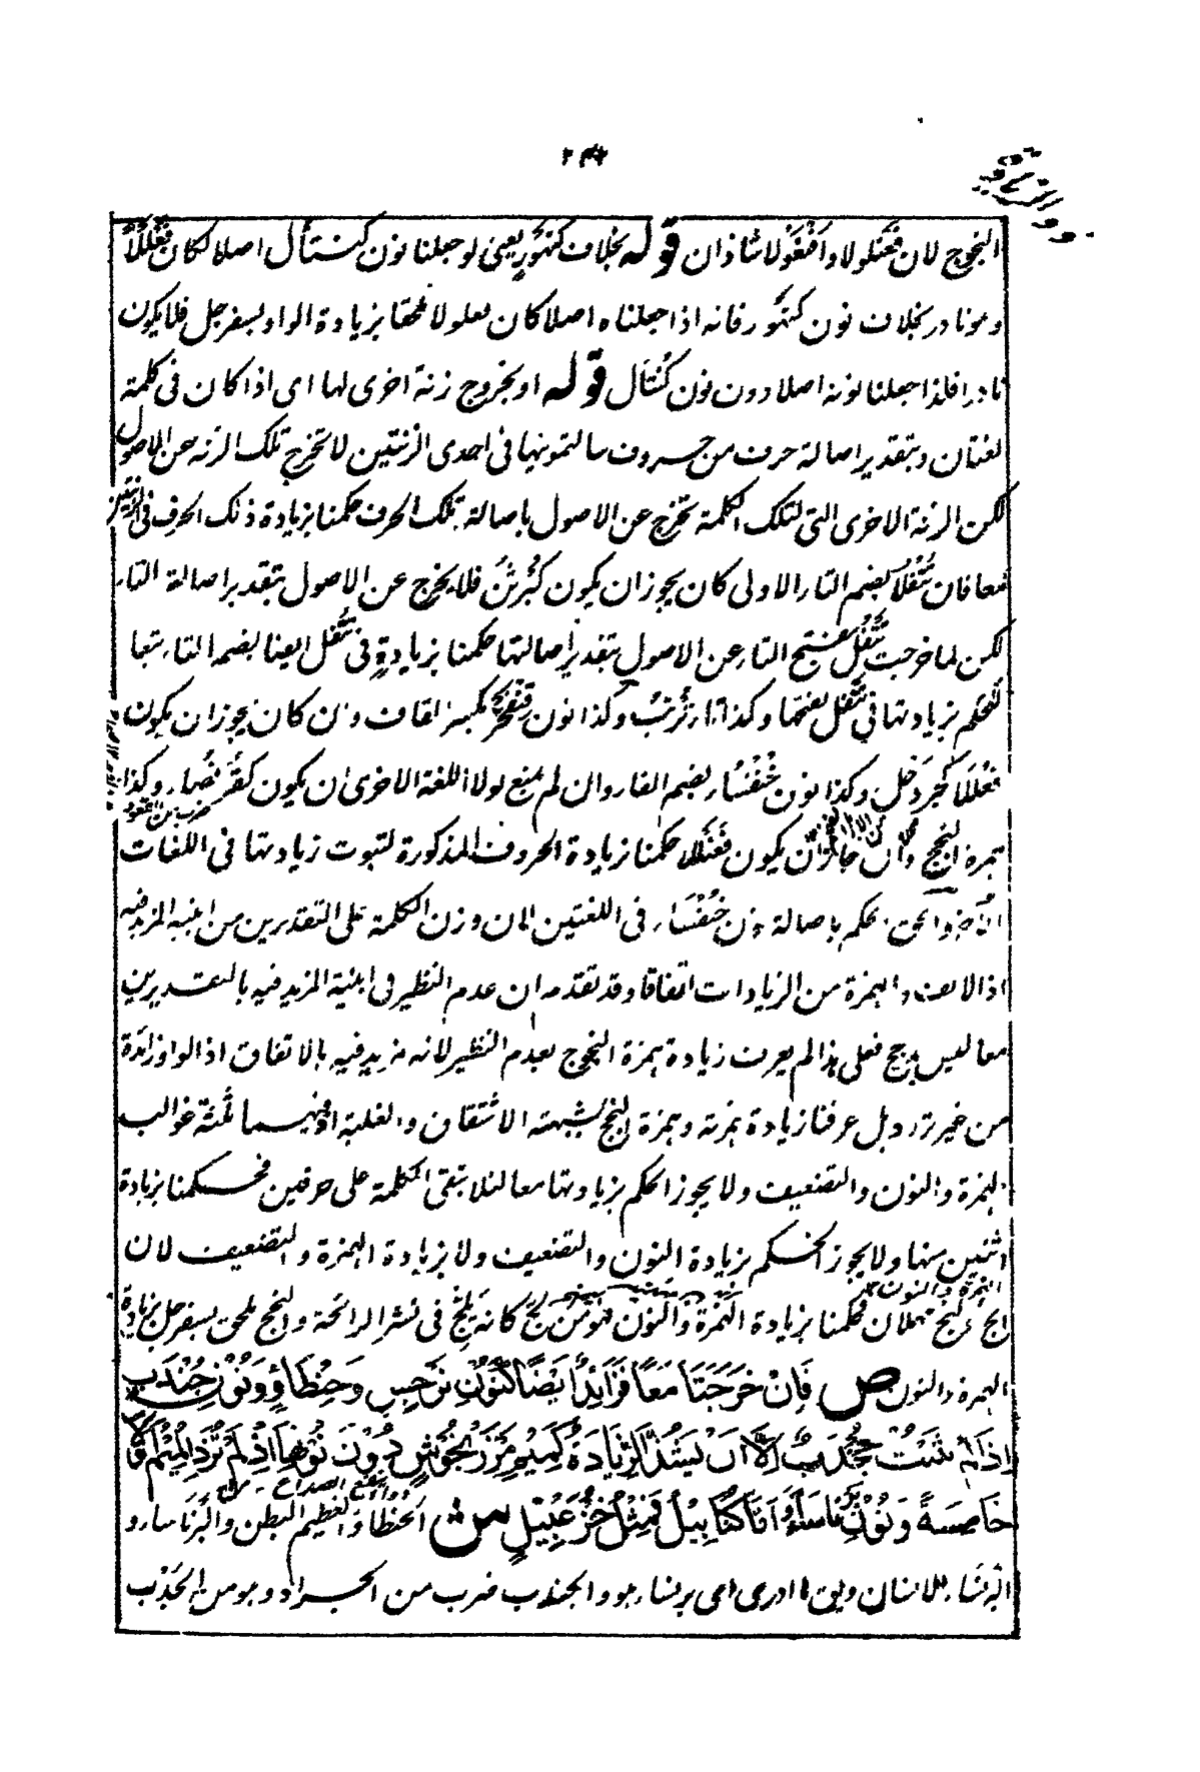 النجوج لان فعنلولا وافنعولا شاذان قوله بخلاف كنهور يعني لو جعلنا نون كنتأل اصلا لكان فعللا
وهو نادر بخلاف نون كنهور فانه اذا جعلناه اصلا كان فعلولا ملحقا بزيادة الواو بسفرجل فلا يكون
نادرا فلذا جعلنا نونه اصلا دون نون كنتأل قوله او بخروج زنة اخرى لها اى اذا كان فى كلمة
لغتان وبتقدير اصالة حرف من حروف سالتمونيها فى احدى الزنتين لا تخرج تلك الزنة عن الاصول
لكن الزنة الاخرى التى لتلك الكلمة تخرج عن الاصول باصالة تلك الحرف حكمنا بزيادة ذلك الحرف فى الزنتين
معا فان تتفلا بضم التاء الاولى كان يجوز ان يكون كبرثن فلا يخرج عن الاصول بتقدير اصالة التاء
لكن لما خرجت تتفل بفتح التاء عن الاصول بتقدير اصالتها حكمنا بزيادة فى تتفل ايضا بضم التاء تبعا
للحكم بزيادتها فى تتفل بفتحها وكذا تاء ترتب وكذا نون قنفخر بكسر القاف وان كان يجوز ان يكون
فعللا كجردحل وكذا نون خنفساء بضم الفاء وان لم يمنع لولا اللغة الاخرى ان يكون كقرفصاء وكذا
همزة النجج وان جاز ان يكون فعنلا حكمنا بزيادة الحروف المذكورة لثبوت زيادتها فى اللغات
نحكم باصالة نون خنفساء فى اللغتين لان وزن الكلمة على التقديرين من ابنية المزيد فيه
اذ الالف والهمزة من الزيادات اتفاقا وقد تقدم ان عدم النظير فى ابنية المزيد فيه بالتقديرين
معا ليس بمرجح فعلى هذا لم يعرف زيادة همزة النجوج بعدم النظير لانه مزيد فيه بالاتفاق اذ الواو زائدة
من غير تردد بل عرفنا زيادة همزته وهمزة النجج بشبهة الاشتقاق والغلبة اذ فيهما ثلثة غوالب
الهمزة والنون والتضعيف ولا يجوز الحكم بزيادتها معا لئلا تبقى الكلمة على حرفين فحكمنا بزيادة
اثنين منها ولا يجوز الحكم بزيادة النون والتضعيف ولا بزيادة الهمزة والتضعيف لان
الج ولنج مهملان فحكمنا بزيادة الهمزة والنون فهو من لج كانه يلج فى نشر الرائحة والنجج ملحق بسفرجل بزيادة
الهمزة والنون ص فَإِنْ خَرَجَتَا مَعًا فَزَائِدٌ اَيْضًا كَنُوْنِ نَرْجِسٍ وَحِنْطَأْوٍ وَنُوْنِ جُنْدَبٍ
اِذَا لَمْ يَثْبُتْ جُخْدَبٌ اِلَّا اَنْ يَشُذَّ الزِّيَادَةُ كَمِيْمِ مَرْزَنْجُوْشٍ دُوْنَ نُوْنِهَا اِذْ لَمْ تُزَدِ الْمِيْمُ اَوَّلًا
خَامِسَةً وَنُوْنِ بَرْنَاسَاءَ وَاَمَّا كُنَابِيْلُ فَمِثْلُ خُزَعْبِيْلٍ ش الحنطأو العظيم البطن والبرناساء و
البرنساء الانسان ويق ما ادرى اى برنساء هو والجندب ضرب من الجراد وهو من الجدب